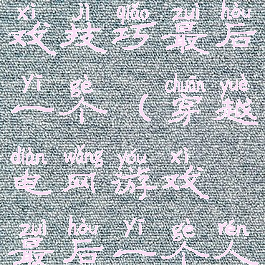 xì jì qiǎo zuì hòu
戏技巧最后
yī gè chuān yuè
一个（穿越
diàn wǎng yóu xì
电网游戏
zuì hòu yī gè rén
最后一个人